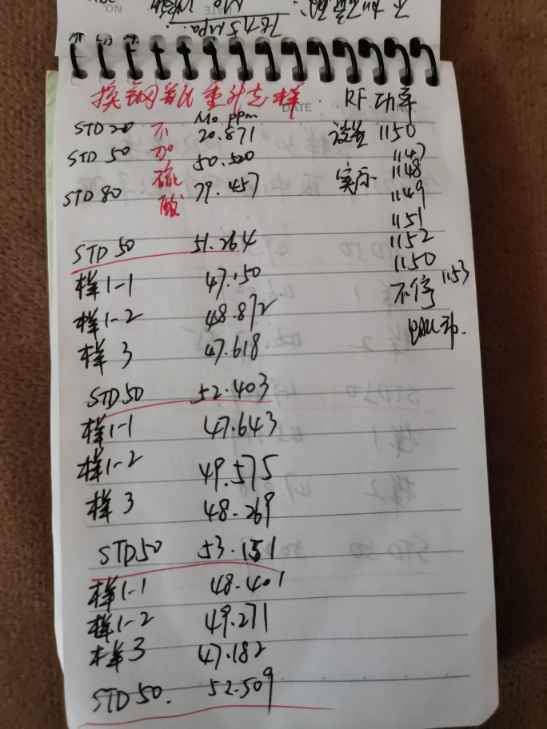 78.75 Mpa.
RF功率
Mo ppm
STD 20 不 20.871 设置 1150
STD 50 加 50.520 1147
硫 实际 1148
STD 80 酸 79.457 1149
1151
STD 50 51.264 1152
样1-1 47.150 1150
1153
样1-2 48.872 不停
样3 47.618
STD50 52.403
样1-1 47.643
样1-2 49.575
样3 48.269
STD50 53.151
样1-1 48.401
样1-2 49.271
样3 47.182
STD50. 52.509